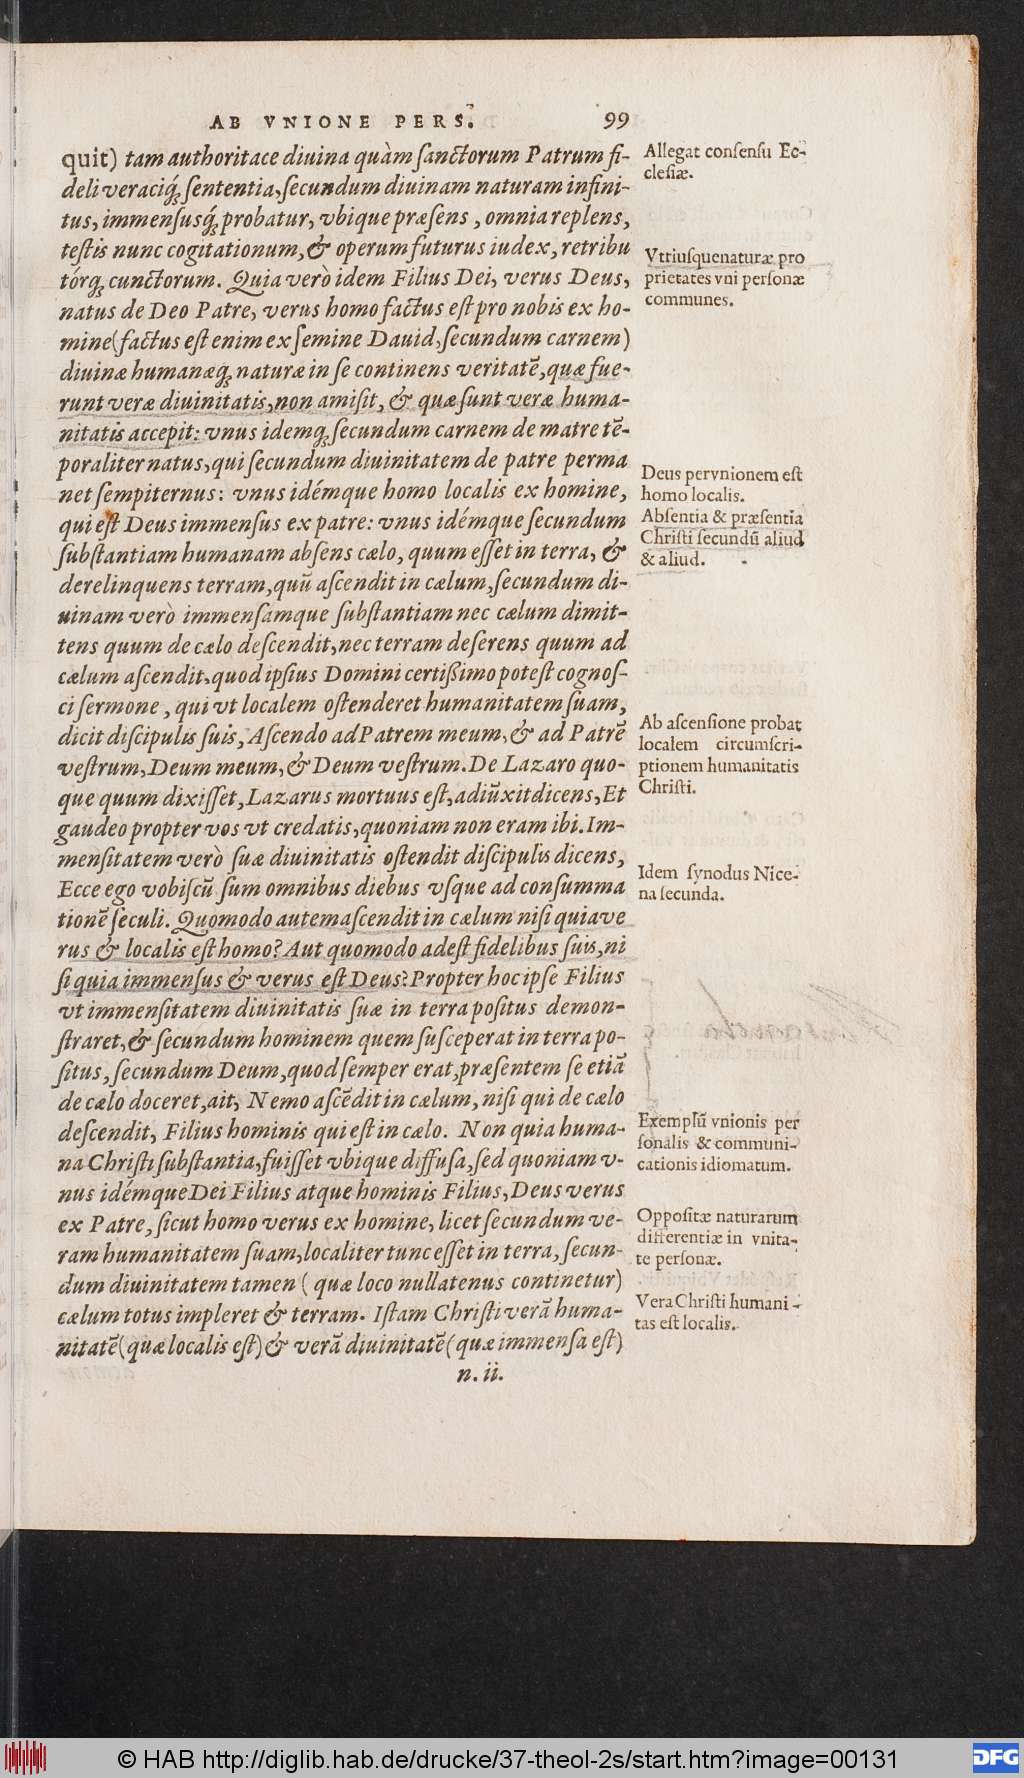 AB VNIONE PERS. 99
quit) tam authoritace diuina quàm ſanctorum Patrum fi-
deli veraciq́ꝫ ſententia, ſecundum diuinam naturam infini-
tus, immenſusq́ꝫ probatur, vbique præſens, omnia replens,
teſtis nunc cogitationum, & operum futurus iudex, retribu
tórqꝫ cunctorum. Quia verò idem Filius Dei, verus Deus,
natus de Deo Patre, verus homo factus eſt pro nobis ex ho-
mine (factus eſt enim ex ſemine Dauid, ſecundum carnem)
diuinæ humanæqꝫ naturæ in ſe continens veritatē, quæ fue-
runt veræ diuinitatis, non amiſit, & quæ ſunt veræ huma-
nitatis accepit: vnus idemqꝫ ſecundum carnem de matre tē-
poraliter natus, qui ſecundum diuinitatem de patre perma
net ſempiternus: vnus idémque homo localis ex homine,
qui eſt Deus immenſus ex patre: vnus idémque ſecundum
ſubſtantiam humanam abſens cælo, quum eſſet in terra, &
derelinquens terram, quū aſcendit in cælum, ſecundum di-
uinam verò immenſamque ſubſtantiam nec cælum dimit-
tens quum de cælo deſcendit, nec terram deſerens quum ad
cælum aſcendit, quod ipſius Domini certißimo poteſt cognoſ-
ci ſermone, qui vt localem oſtenderet humanitatem ſuam,
dicit diſcipulis ſuis, Aſcendo ad Patrem meum, & ad Patrē
veſtrum, Deum meum, & Deum veſtrum. De Lazaro quo-
que quum dixiſſet, Lazarus mortuus eſt, adiūxit dicens, Et
gaudeo propter vos vt credatis, quoniam non eram ibi. Im-
menſitatem verò ſuæ diuinitatis oſtendit diſcipulis dicens,
Ecce ego vobiſcū ſum omnibus diebus vſque ad conſumma
tionē ſeculi. Quomodo autem aſcendit in cælum niſi quia ve
rus & localis eſt homo? Aut quomodo adeſt fidelibus ſuis, ni
ſi quia immenſus & verus eſt Deus? Propter hoc ipſe Filius
vt immenſitatem diuinitatis ſuæ in terra poſitus demon-
ſtraret, & ſecundum hominem quem ſuſceperat in terra po-
ſitus, ſecundum Deum, quod ſemper erat, præſentem ſe etiā
de cælo doceret, ait, Nemo aſcēdit in cælum, niſi qui de cælo
deſcendit, Filius hominis qui eſt in cælo. Non quia huma-
na Chriſti ſubſtantia, fuiſſet vbique diffuſa, ſed quoniam v-
nus idémque Dei Filius atque hominis Filius, Deus verus
ex Patre, ſicut homo verus ex homine, licet ſecundum ve-
ram humanitatem ſuam, localiter tunc eſſet in terra, ſecun-
dum diuinitatem tamen (quæ loco nullatenus continetur)
cælum totus impleret & terram. Iſtam Chriſti verā huma-
nitatē (quæ localis eſt) & verā diuinitatē (quæ immenſa eſt)
n. ii.
Allegat conſenſu Ec-
cleſiæ.
Vtriuſque naturæ pro
prietates vni perſonæ
communes.
Deus per vnionem eſt
homo localis.
Abſentia & præſentia
Chriſti ſecundū aliud
& aliud.
Ab aſcenſione probat
localem circumſcri-
ptionem humanitatis
Chriſti.
Idem ſynodus Nice-
na ſecunda.
Exemplū vnionis per
ſonalis & communi-
cationis idiomatum.
Oppoſitæ naturarum
differentiæ in vnita-
te perſonæ.
Vera Chriſti humani-
tas eſt localis.
© HAB http://diglib.hab.de/drucke/37-theol-2s/start.htm?image=00131
DFG